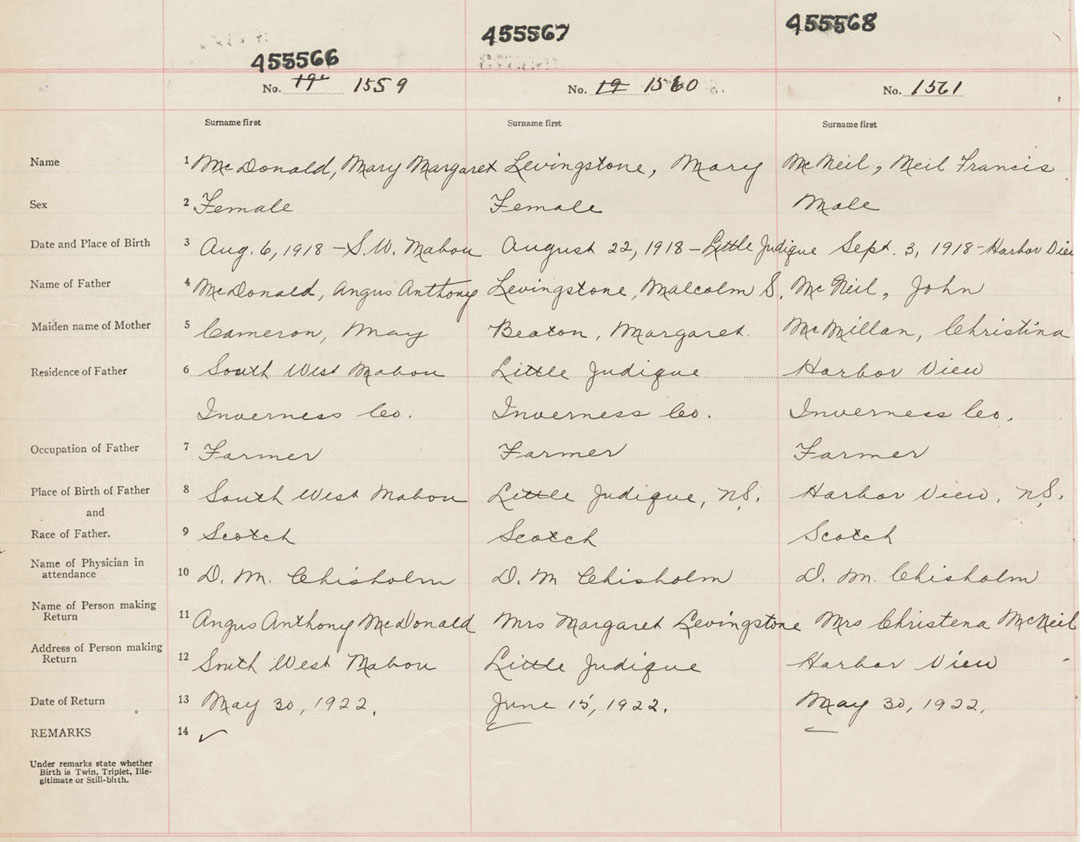 455566 455567 455568
No. 19 1559 No. 19 1560 No. 1561
Surname first Surname first Surname first
Name 1 McDonald, Mary Margaret Levingstone, Mary McNeil, Neil Francis
Sex 2 Female Female Male
Date and Place of Birth 3 Aug. 6, 1918 – S.W. Mabou August 22, 1918 – Little Judique Sept. 3, 1918 – Harbor View
Name of Father 4 McDonald, Angus Anthony Levingstone, Malcolm S. McNeil, John
Maiden name of Mother 5 Cameron, May Beaton, Margaret. McMillan, Christina
Residence of Father 6 South West Mabou Little Judique Harbor View
Inverness Co. Inverness Co. Inverness Co.
Occupation of Father 7 Farmer Farmer Farmer
Place of Birth of Father 8 South West Mabou Little Judique, N.S. Harbor View, N.S.
and
Race of Father. 9 Scotch Scotch Scotch
Name of Physician in
attendance 10 D. M. Chisholm D. M Chisholm D. M. Chisholm
Name of Person making
Return 11 Angus Anthony McDonald Mrs Margaret Levingstone Mrs Christena McNeil
Address of Person making
Return 12 South West Mabou Little Judique Harbor View
Date of Return 13 May 30, 1922. June 15, 1922. May 30, 1922.
REMARKS 14
Under remarks state whether
Birth is Twin, Triplet, Ille-
gitimate or Still-birth.